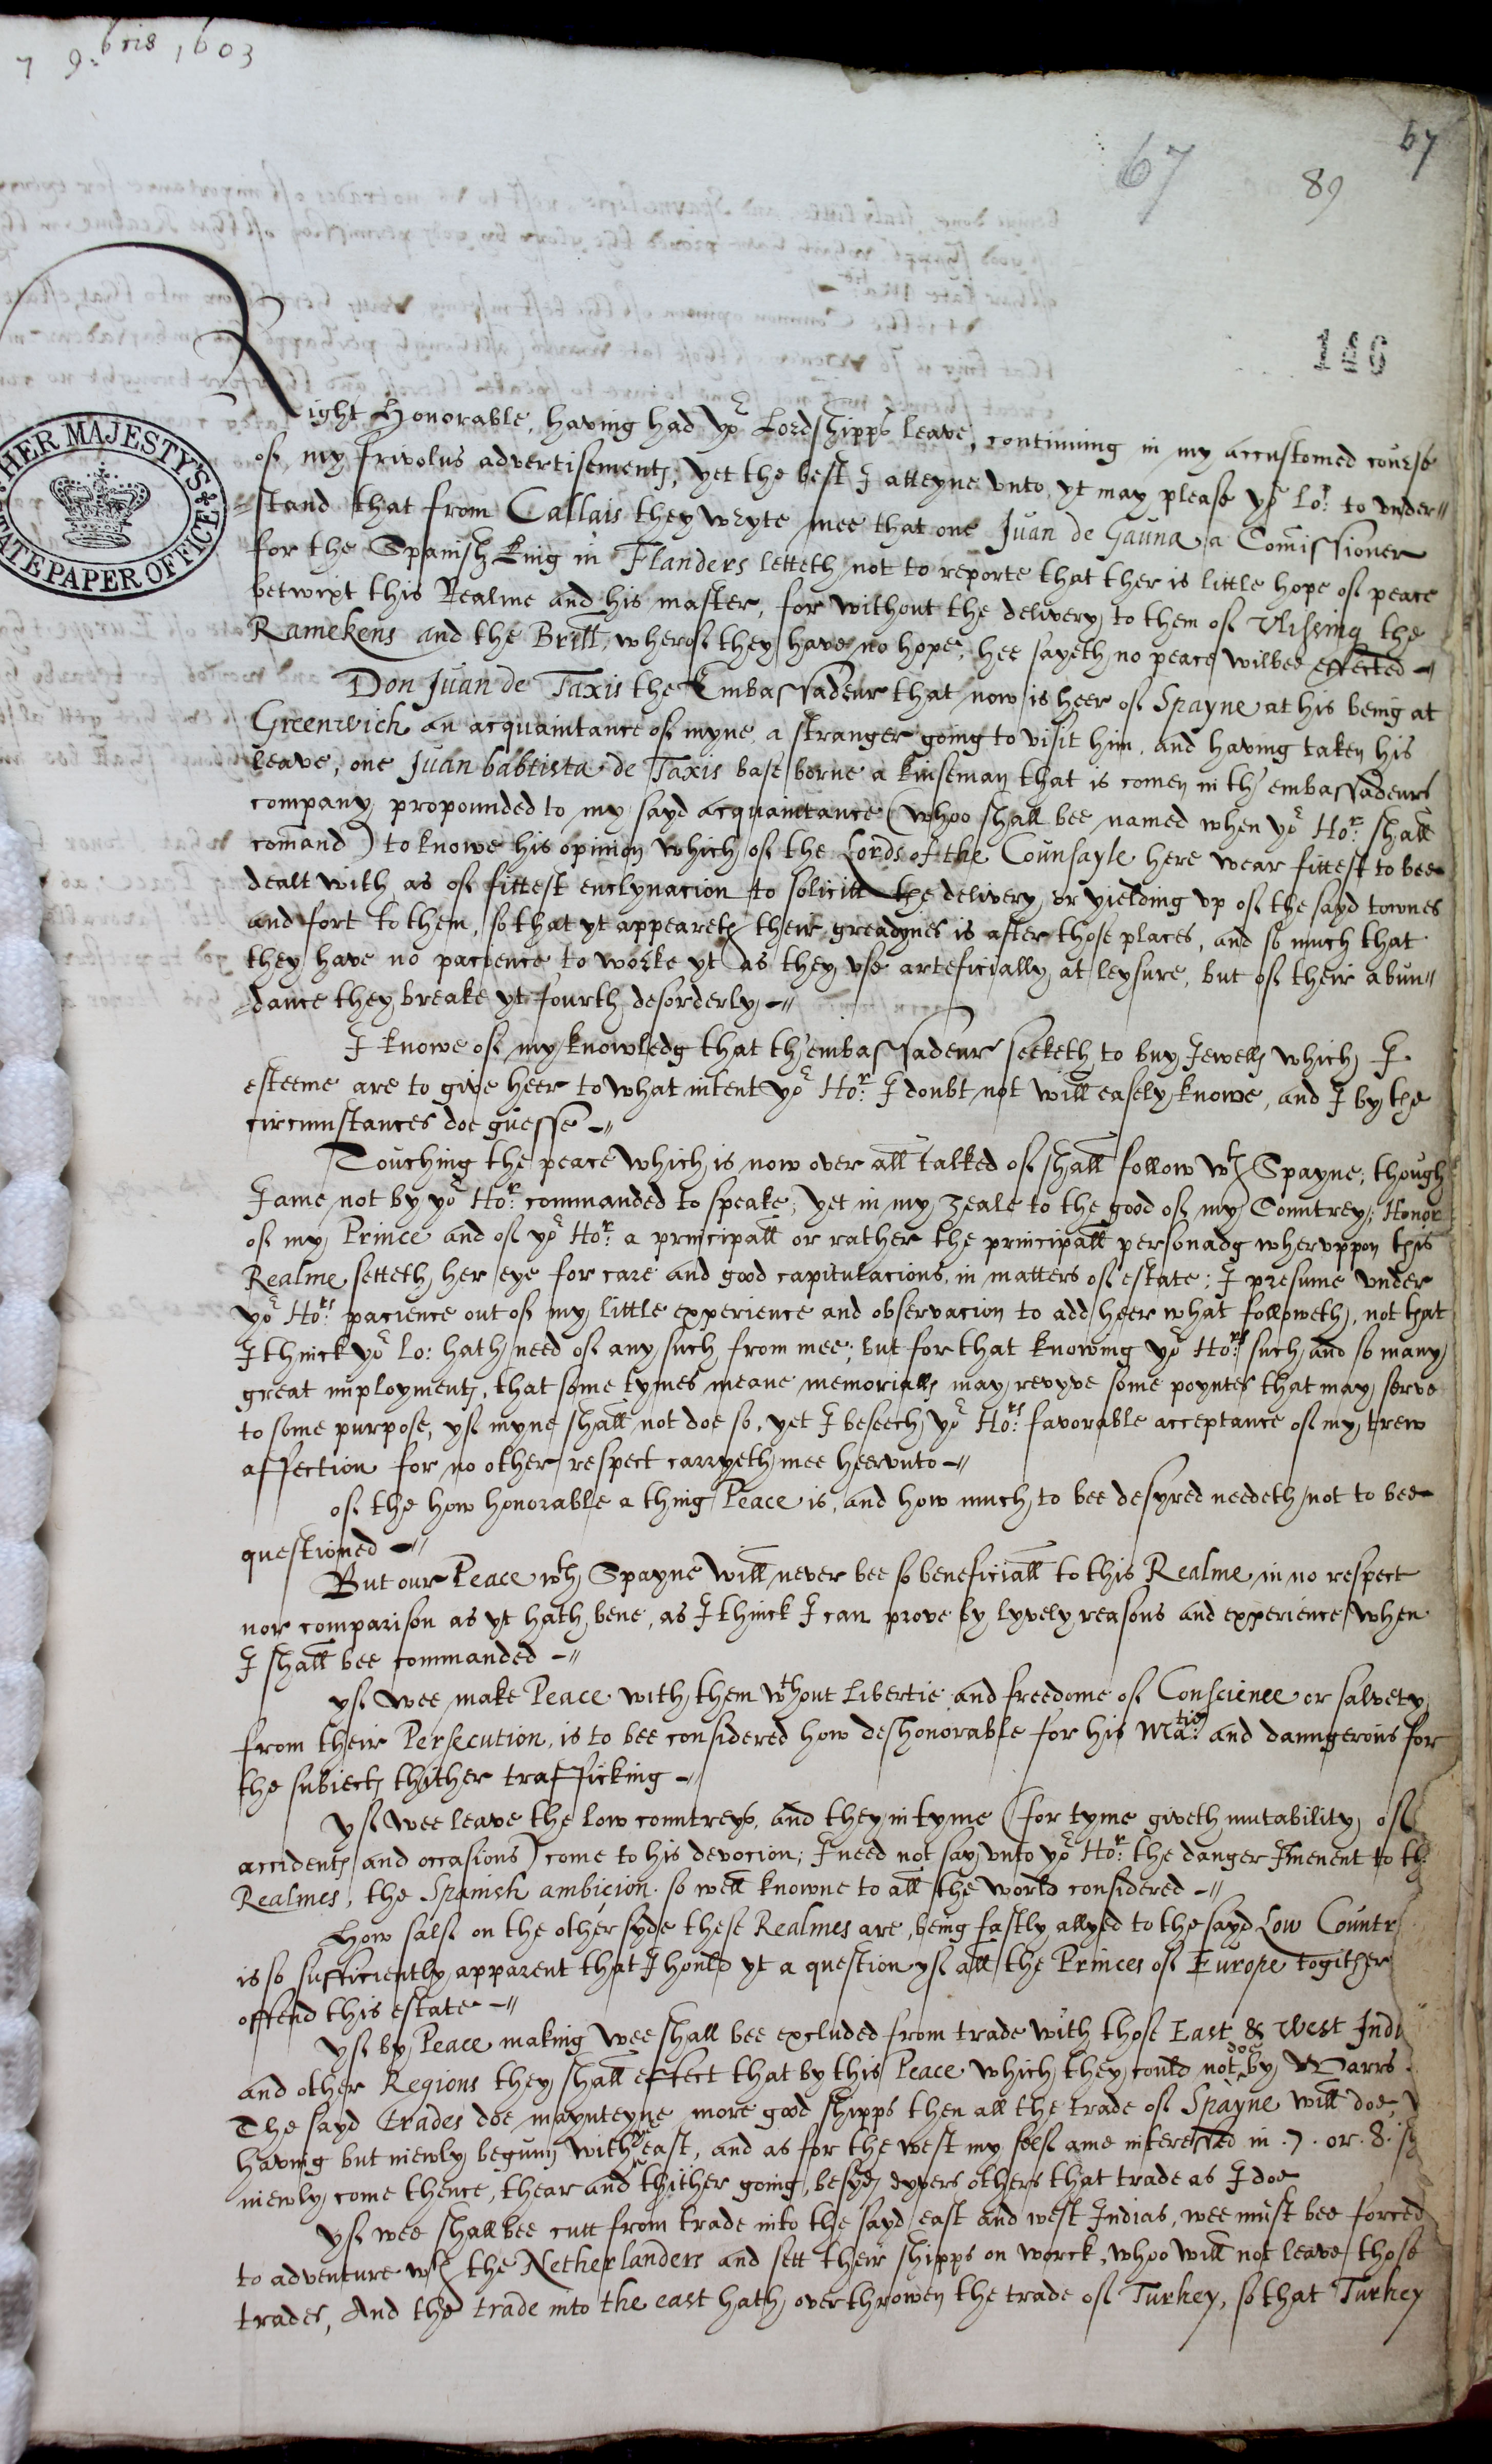 7 9:bris 1603
67
89
67
146
HER MAJESTY'S
STATE PAPER OFFICE
Right Honorable, having had yor Lordshipps leave, continuing in my accustomed course
of my frivolus advertisements, yet the best I atteyne vnto, yt may please yor Lo:p to vnder//
=stand that from Callais they wryte mee that one Juan de Gauna a Comissioner
for the Spanish King in Flanders letteth not to reporte that ther is little hope of peace
betwixt this Realme and his master, for without the delivery to them of Vlissing the
Ramekens and the Brill, wherof they have no hope, hee sayeth no peace wilbee effected -//
Don Juan de Taxis the Embassadeur that now is heer of Spayne at his being at
Greenwich an acquaintance of myne a stranger going to visit him, and having taken his
leave, one Juan babtista de Taxis base borne a kinseman that is comen in th'embassadeurs
company, propounded to my sayd acquaintance (whoo shall bee named when yor Ho:r shall
comand) to knowe his opinion which of the Lords of the Counsayle here wear fittest to bee
dealt with as of fittest enclynacion to solicitt the delivery or yielding vp of the sayd townes
and fort to them, so that yt appeareth their greadynes is after those places, and so much that
they have no pacience to worke yt as they vse arteficially at leysure, but of their abun//
=dance they breake yt fourth desorderly -//
I knowe of my knowledg that th'embassadeur seeketh to buy Jewells which I
esteeme are to give heer to what intent yor Ho:r I doubt not will easely knowe, and I by the
circumstances doe guesse -//
Touching the peace which is now over all talked of shall follow wth Spayne, though
I ame not by yor Ho:r commanded to speake, yet in my zeale to the good of my Countrey; Honor
of my Prince and of yor Ho:r a principall or rather the principall personadg wheruppon this
Realme setteth her eye for care and good capitulacions, in matters of estate; I presume vnder
yor Ho:rs pacience out of my little experience and observacion to add heer what followeth, not that
I thinck yor Lo: hath need of any such from mee, but for that knowing yor Ho:rs such and so many
great imployments, that some tymes meane memorialls may revyve some poyntes that may serve
to some purpose, yf myne shall not doe so, yet I beseech yor Ho:rs favorable acceptance of my trew
affection for no other respect carryeth mee heervnto -//
of the how honorable a thing Peace is, and how much to bee desyred needeth not to bee
questioned -//
But our Peace wth Spayne will never bee so beneficiall to this Realme in no respect
nor comparison as yt hath bene, as I thinck I can prove by lyvely reasons and experience when
I shall bee commanded -//
yf wee make Peace with them wthout Libertie and freedome of Conscience or salvety
from their Persecution, is to bee considered how deshonorable for his Ma:tie and daungerous for
the subiects thither trafficking -//
Yf wee leave the low countreys, and they in tyme (for tyme giveth mutability of
accidents and occasions) come to his devocion; I need not say vnto yor Ho:r the danger Imenent to th
Realmes, the Spanish ambicion so well knowne to all the world considered -//
How salf on the other syde these Realmes are, being fastly allyed to the sayd Low Countr
is so sufficiently apparent that I hould yt a question yf all the Princes of Europe togither
offend this estate -//
Yf by Peace making wee shall bee excluded from trade with those East & West Indi
and other Regions they shall effect that by this Peace which they could not doe by Warrs.
The sayd trades doe maynteyne more good shipps then all the trade of Spayne will doe,
having but niewly begunn with the east, and as for the west my self ame interessed in .7. or .8. sh
niewly come thence, thear and thither going, besyds dyvers others that trade as I doe
Yf wee shall bee cutt from trade into the sayd east and west Indias, wee must bee forced
to adventure wth the Netherlanders and sett their shipps on worck, whoo will not leave those
trades, And the trade into the east hath overthrowen the trade of Turkey, so that Turkey